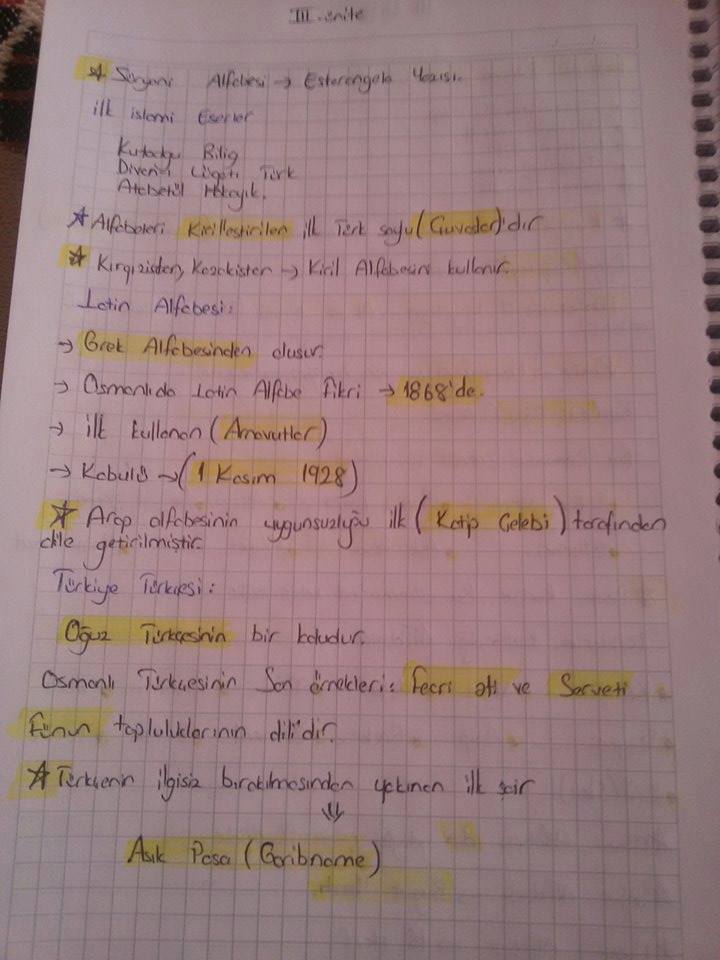 III. ünite
☆ Süryani Alfabesi → Esterengela Yazısı.
ilk islami Eserler
Kutadgu Bilig
Divan-ı Lügati Türk
Atebetül Hakayık.
☆ Alfabeleri Kirilleştirilen ilk Türk soylu (Çuvaşlar)'dır
☆ Kırgızistan, Kazakistan → Kiril Alfabesini kullanır.
Latin Alfabesi:
→ Grek Alfabesinden oluşur.
→ Osmanlıda Latin Alfabe Fikri → 1868'de.
→ ilk kullanan (Arnavutlar)
→ Kabulü → (1 Kasım 1928)
☆ Arap alfabesinin uygunsuzluğu ilk (Katip Çelebi) tarafından
dile getirilmiştir.
Türkiye Türkçesi:
Oğuz Türkçesinin bir koludur.
Osmanlı Türkçesinin Son örnekleri: Fecri ati ve Serveti
Fünun topluluklarının dili'dir.
☆ Türkçenin ilgisiz bırakılmasından yakınan ilk şair
⇓
Aşık Paşa (Garibname)